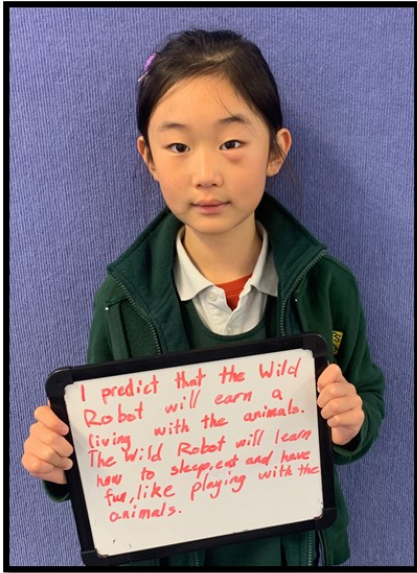 I predict that the Wild
Robot will earn a
living with the animals.
The Wild Robot will learn
how to sleep, eat and have
fun, like playing with the
animals.